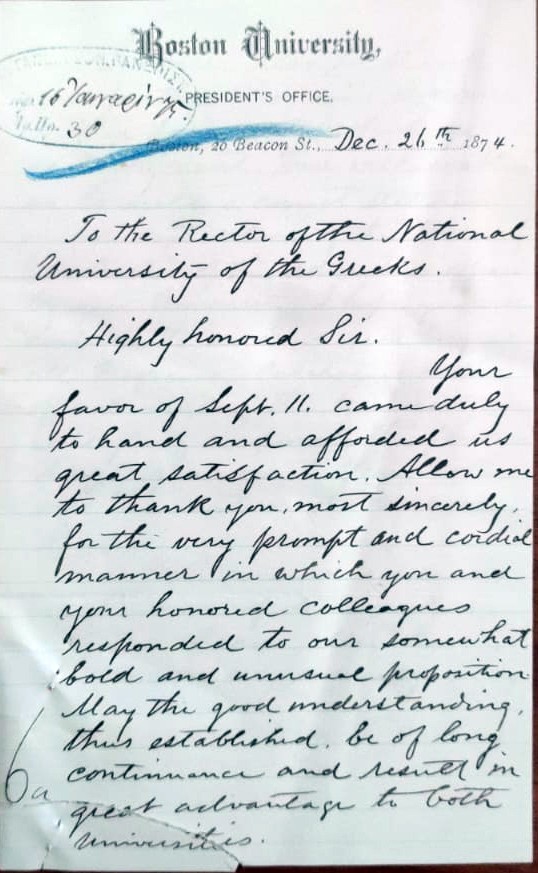 Boston University,
PRESIDENT'S OFFICE.
16 Ἰανουαρίου 75
30
Boston, 20 Beacon St., Dec. 26th 1874.
To the Rector of the National
University of the Greeks.
Highly honored Sir.
Your
favor of Sept. 11. came duly
to hand and afforded us
great satisfaction. Allow me
to thank you, most sincerely,
for the very prompt and cordial
manner in which you and
your honored colleagues
responded to our somewhat
bold and unusual proposition
May the good understanding,
thus established, be of long
continuance and result in
great advantage to both
Universities.
6a